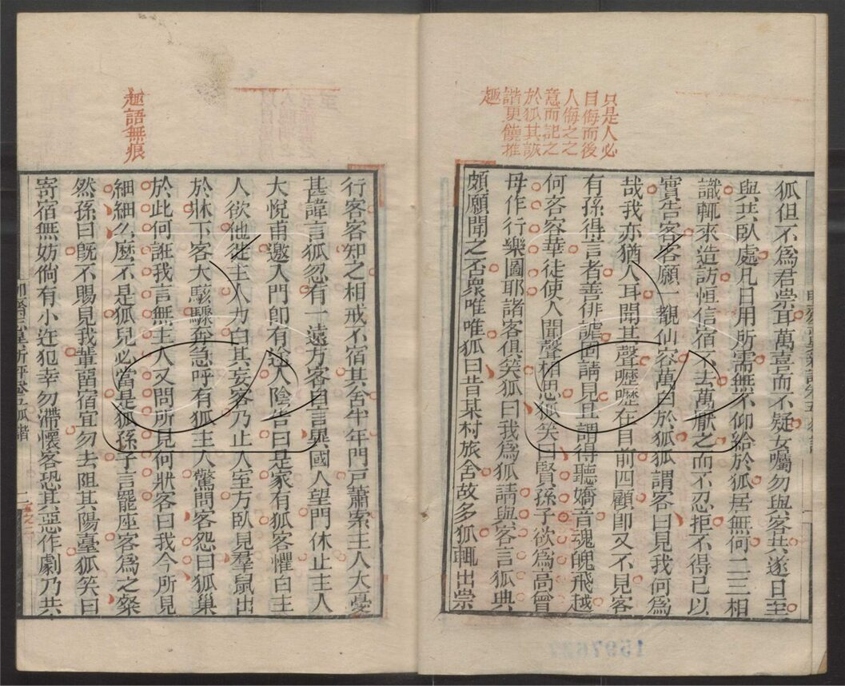 只是人必
自侮而後
人侮之之
意而記之
於狐其詼
諧更饒推
趣
狐但不爲君祟耳萬喜而不疑女囑勿與客共遂日至
與共臥處凡日用所需無不仰給於狐居無何二三相
識輒來造訪恒信宿不去萬厭之而不忍拒不得已以
實告客客願一覩仙容萬白於狐狐謂客曰見我何爲
哉我亦猶人耳聞其聲嚦嚦在目前四顧即又不見客
有孫得言者善俳謔固請見且謂得聽嬌音魂魄飛越
何吝容華徒使人聞聲相思狐笑曰賢孫子欲爲高曾
母作行樂圖耶諸客俱笑狐曰我爲狐請與客言狐典
頗願聞之否衆唯唯狐曰昔某村旅舍故多狐輒出祟
趣語無痕
行客客知之相戒不宿其舍半年門戸蕭索主人大憂
甚諱言狐忽有一遠方客自言異國人望門休止主人
大悅甫邀入門即有途人陰告曰是家有狐客懼白主
人欲他徙主人力白其妄客乃止入室方臥見羣鼠出
於牀下客大駭驟奔急呼有狐主人驚問客怨曰狐巢
於此何誑我言無主人又問所見何狀客曰我今所見
細細么麽不是狐兒必當是狐孫子言罷座客爲之粲
然孫曰既不賜見我輩留宿宜勿去阻其陽臺狐笑曰
寄宿無妨倘有小迕犯幸勿滯懷客恐其惡作劇乃共